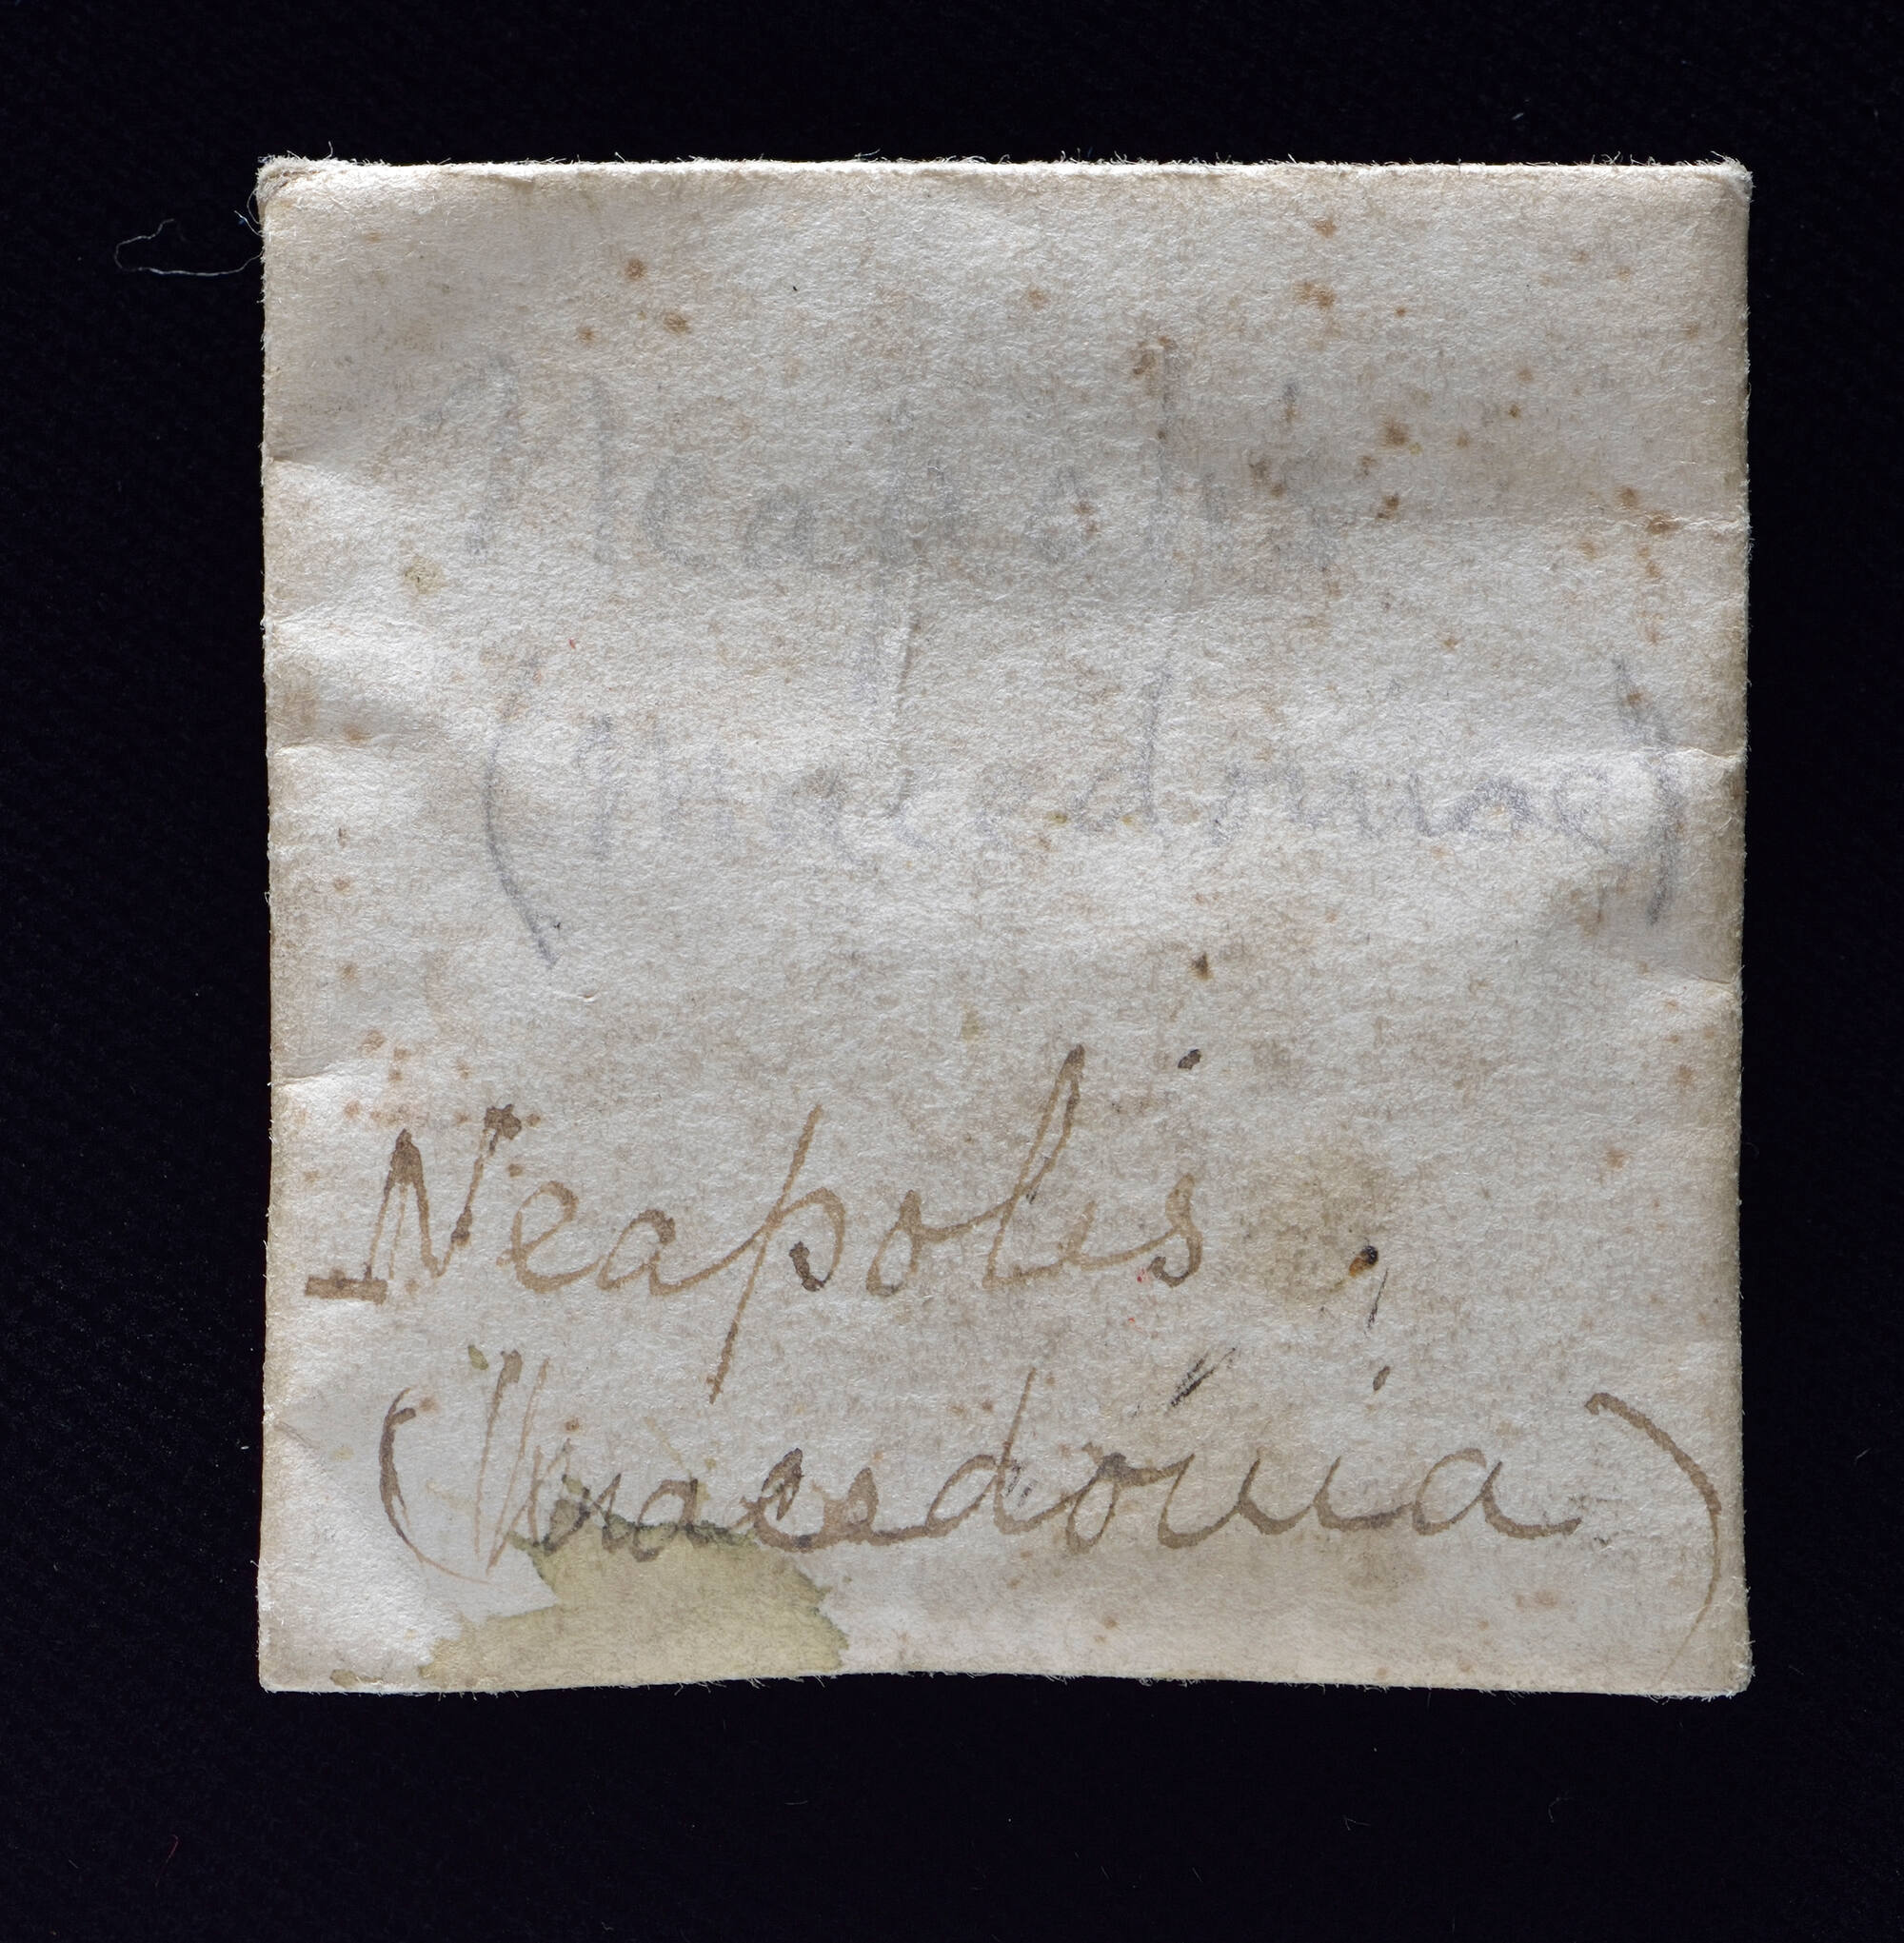 Neapolis
(Macedoniae)
Neapolis
(Macedónia)